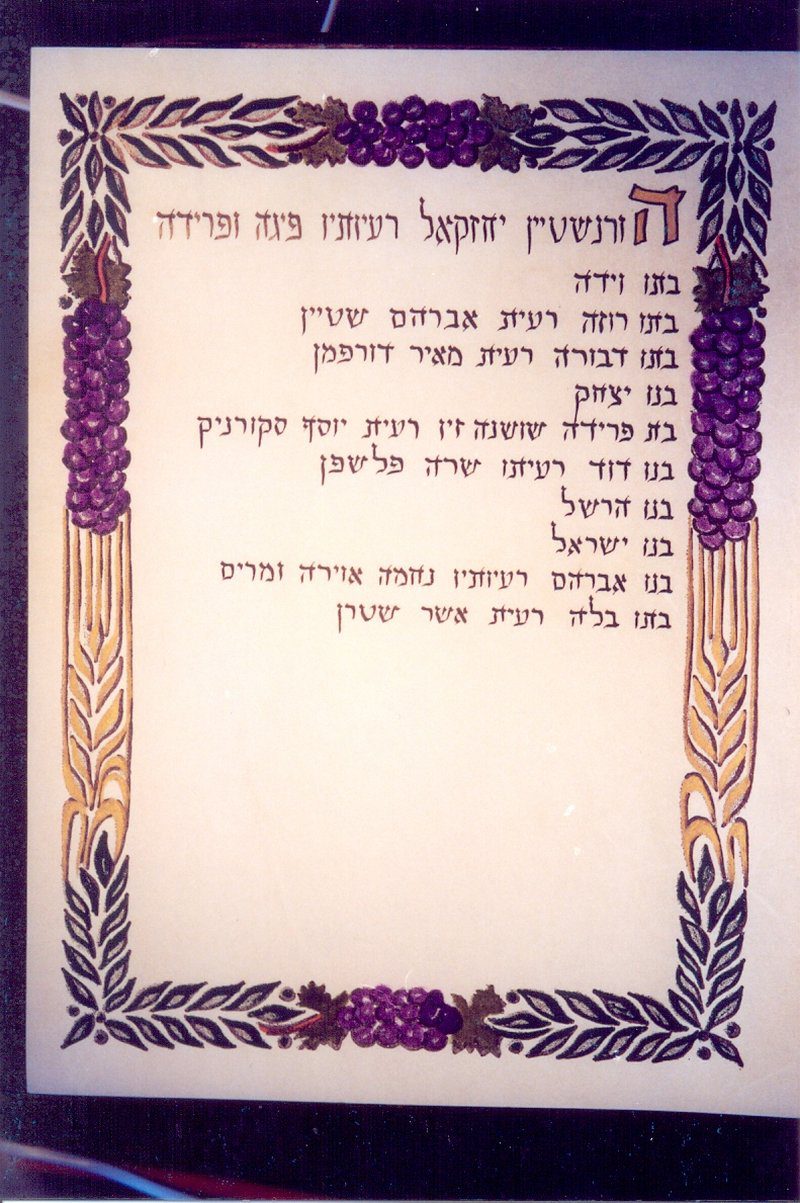 הורנשטיין יחזקאל רעיותיו פיגה ופרידה
בתו זידה
בתו רוזה רעית אברהם שטיין
בתו דבורה רעית מאיר דורפמן
בנו יצחק
בת פרידה שושנה זיו רעית יוסף סקורניק
בנו דוד רעיתו שרה פלשפן
בנו הרשל
בנו ישראל
בנו אברהם רעיותיו נחמה אזירה ומרים
בתו בלה רעית אשר שטרן